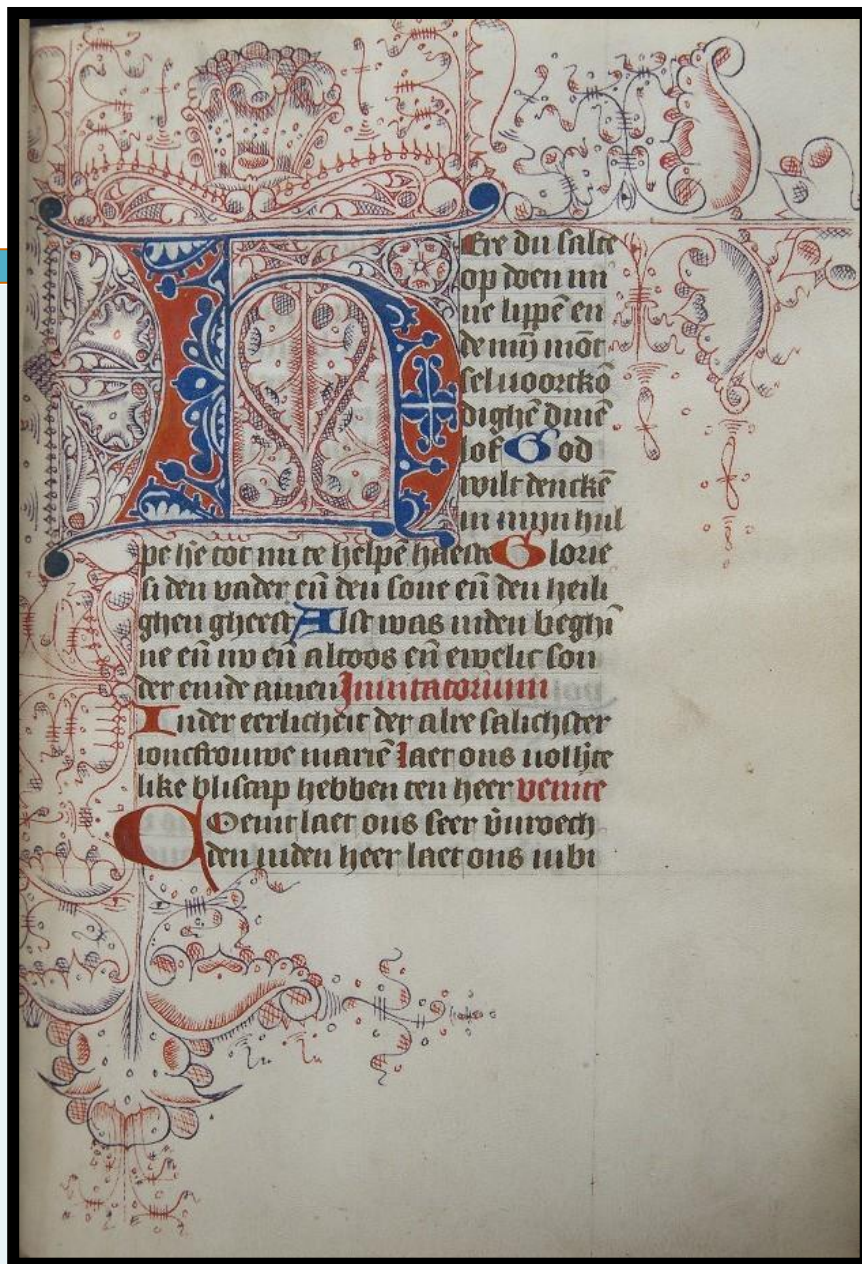 HEre du salte
op doen mi
ne lippē en
de mijn mōt
sel voortkō
dighē dinē
lof God
wilt dencken̄
in mijn hul
pe h̄e tot mi te helpē haeste Glorie
si den vader en̄ den sone en̄ den heili
ghen gheest Alst was inden beghī
ne en̄ nv en̄ altoos en̄ ewelic son
der einde amen Inuitatorium
Inder eerlicheit der alre salichster
ioncfrouwe mariē laet ons vollijc
like bliscap hebben ten heer venite
COemt laet ons seer v̄uroech
den inden heer laet ons iubi